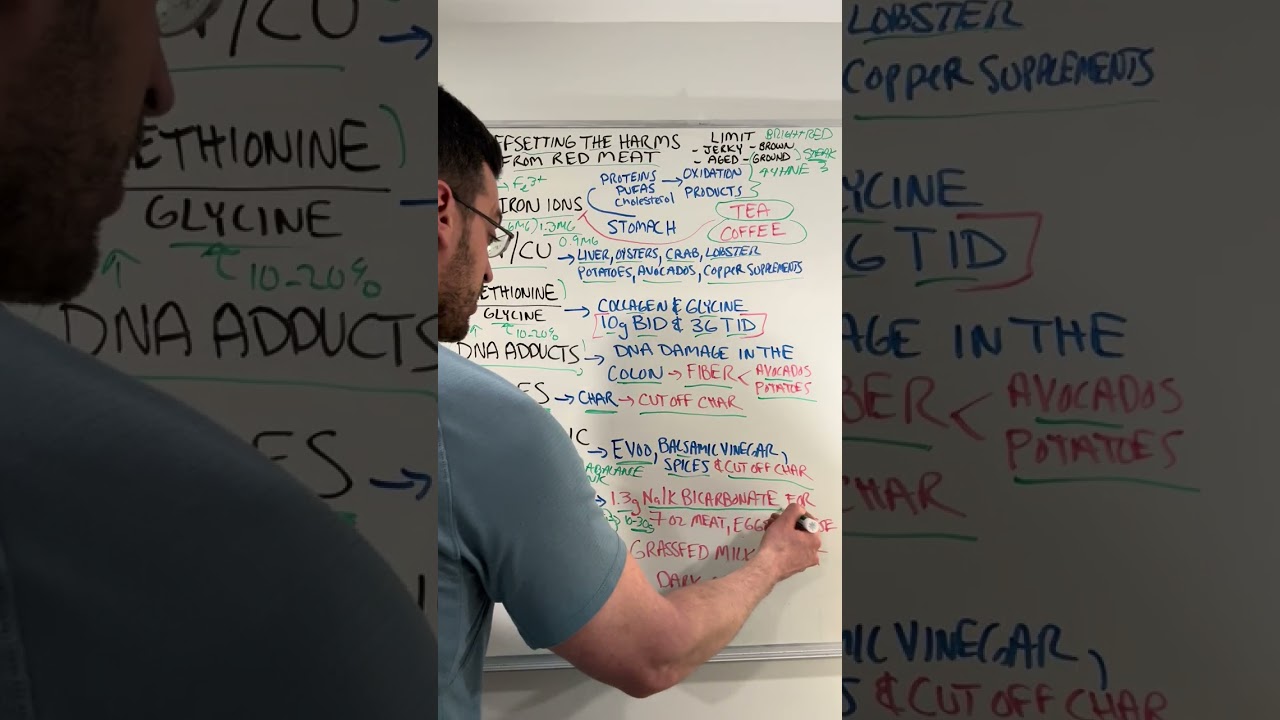 FFSETTING THE HARMS
FROM RED MEAT
LIMIT
- JERKY - BROWN
- AGED - GROUND
BRIGHT RED
STEAK
Fe3+
PROTEINS
PUFAS
Cholesterol
OXIDATION
PRODUCTS
IRON IONS
STOMACH
TEA
COFFEE
1.3MG
0.9MG
/CU
LIVER, OYSTERS, CRAB, LOBSTER
POTATOES, AVOCADOS, COPPER SUPPLEMENTS
ETHIONINE)
GLYCINE
10-20%
COLLAGEN & GLYCINE
10g BID & 3G TID
DNA ADDUCTS
DNA DAMAGE IN THE
COLON → FIBER < AVOCADOS
POTATOES
ES → CHAR → CUT OFF CHAR
IC
EVOO, BALSAMIC VINEGAR,
SPICES & CUT OFF CHAR
1.3g Na/K BICARBONATE FOR
7 OZ MEAT, EGG
SE
GRASSFED MILK
DARK
/CU
ETHIONINE)
GLYCINE
10-20%
DNA ADDUCTS
ES
LOBSTER
COPPER SUPPLEMENTS
YCINE
G TID
AGE IN THE
BER < AVOCADOS
POTATOES
CHAR
MIC VINEGAR,
& CUT OFF CHAR